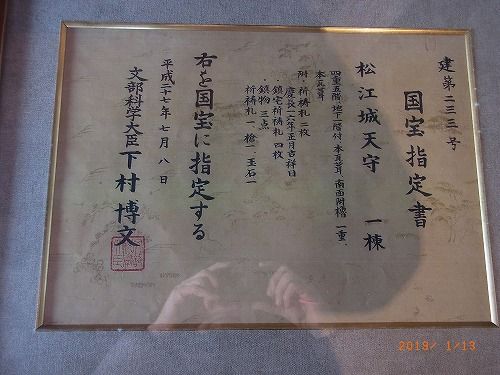 建第二三二号
国宝指定書
松江城天守 一棟
四重五階、地下一階付、本瓦葺、南面附櫓 一重、
本瓦葺
附・祈祷札 二枚
慶長一六年正月吉祥日
・鎮宅祈祷札 四枚
・鎮物 三点
祈祷札一、槍一、玉石一
右を国宝に指定する
平成二十七年七月八日
文部科学大臣 下村博文
2019/ 1/13